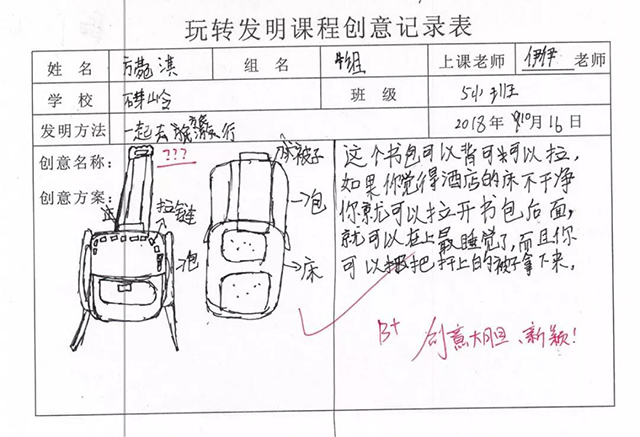 玩转发明课程创意记录表
姓 名 方 淇 组 名 4组 上课老师 伊伊 老师
学 校 碑岭 班 级 5小班
发明方法 一起去 旅行 2018年 10月16日
创意名称: ???
创意方案:
被子
拉链
包
包
床
这个书包可以背可以拉,
如果你觉得酒店的床不干净
你就可以拉开书包后面,
就可以在上最睡觉了,而且你
可以把杆上的被子拿下来。
B+ 创意大胆、新颖!